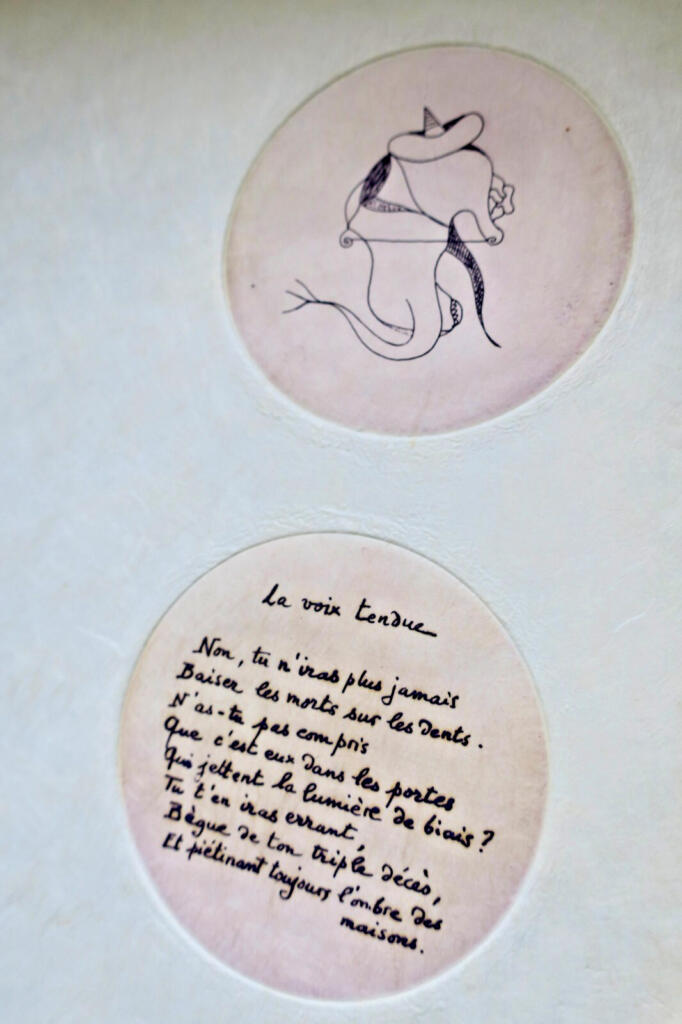 La voix tendue
Non, tu n'iras plus jamais
Baiser les morts sur les dents.
N'as-tu pas compris
Que c'est eux dans les portes
Qui jettent la lumière de biais ?
Tu t'en iras errant,
Bègue de ton triple décès,
Et piétinant toujours l'ombre des
maisons.